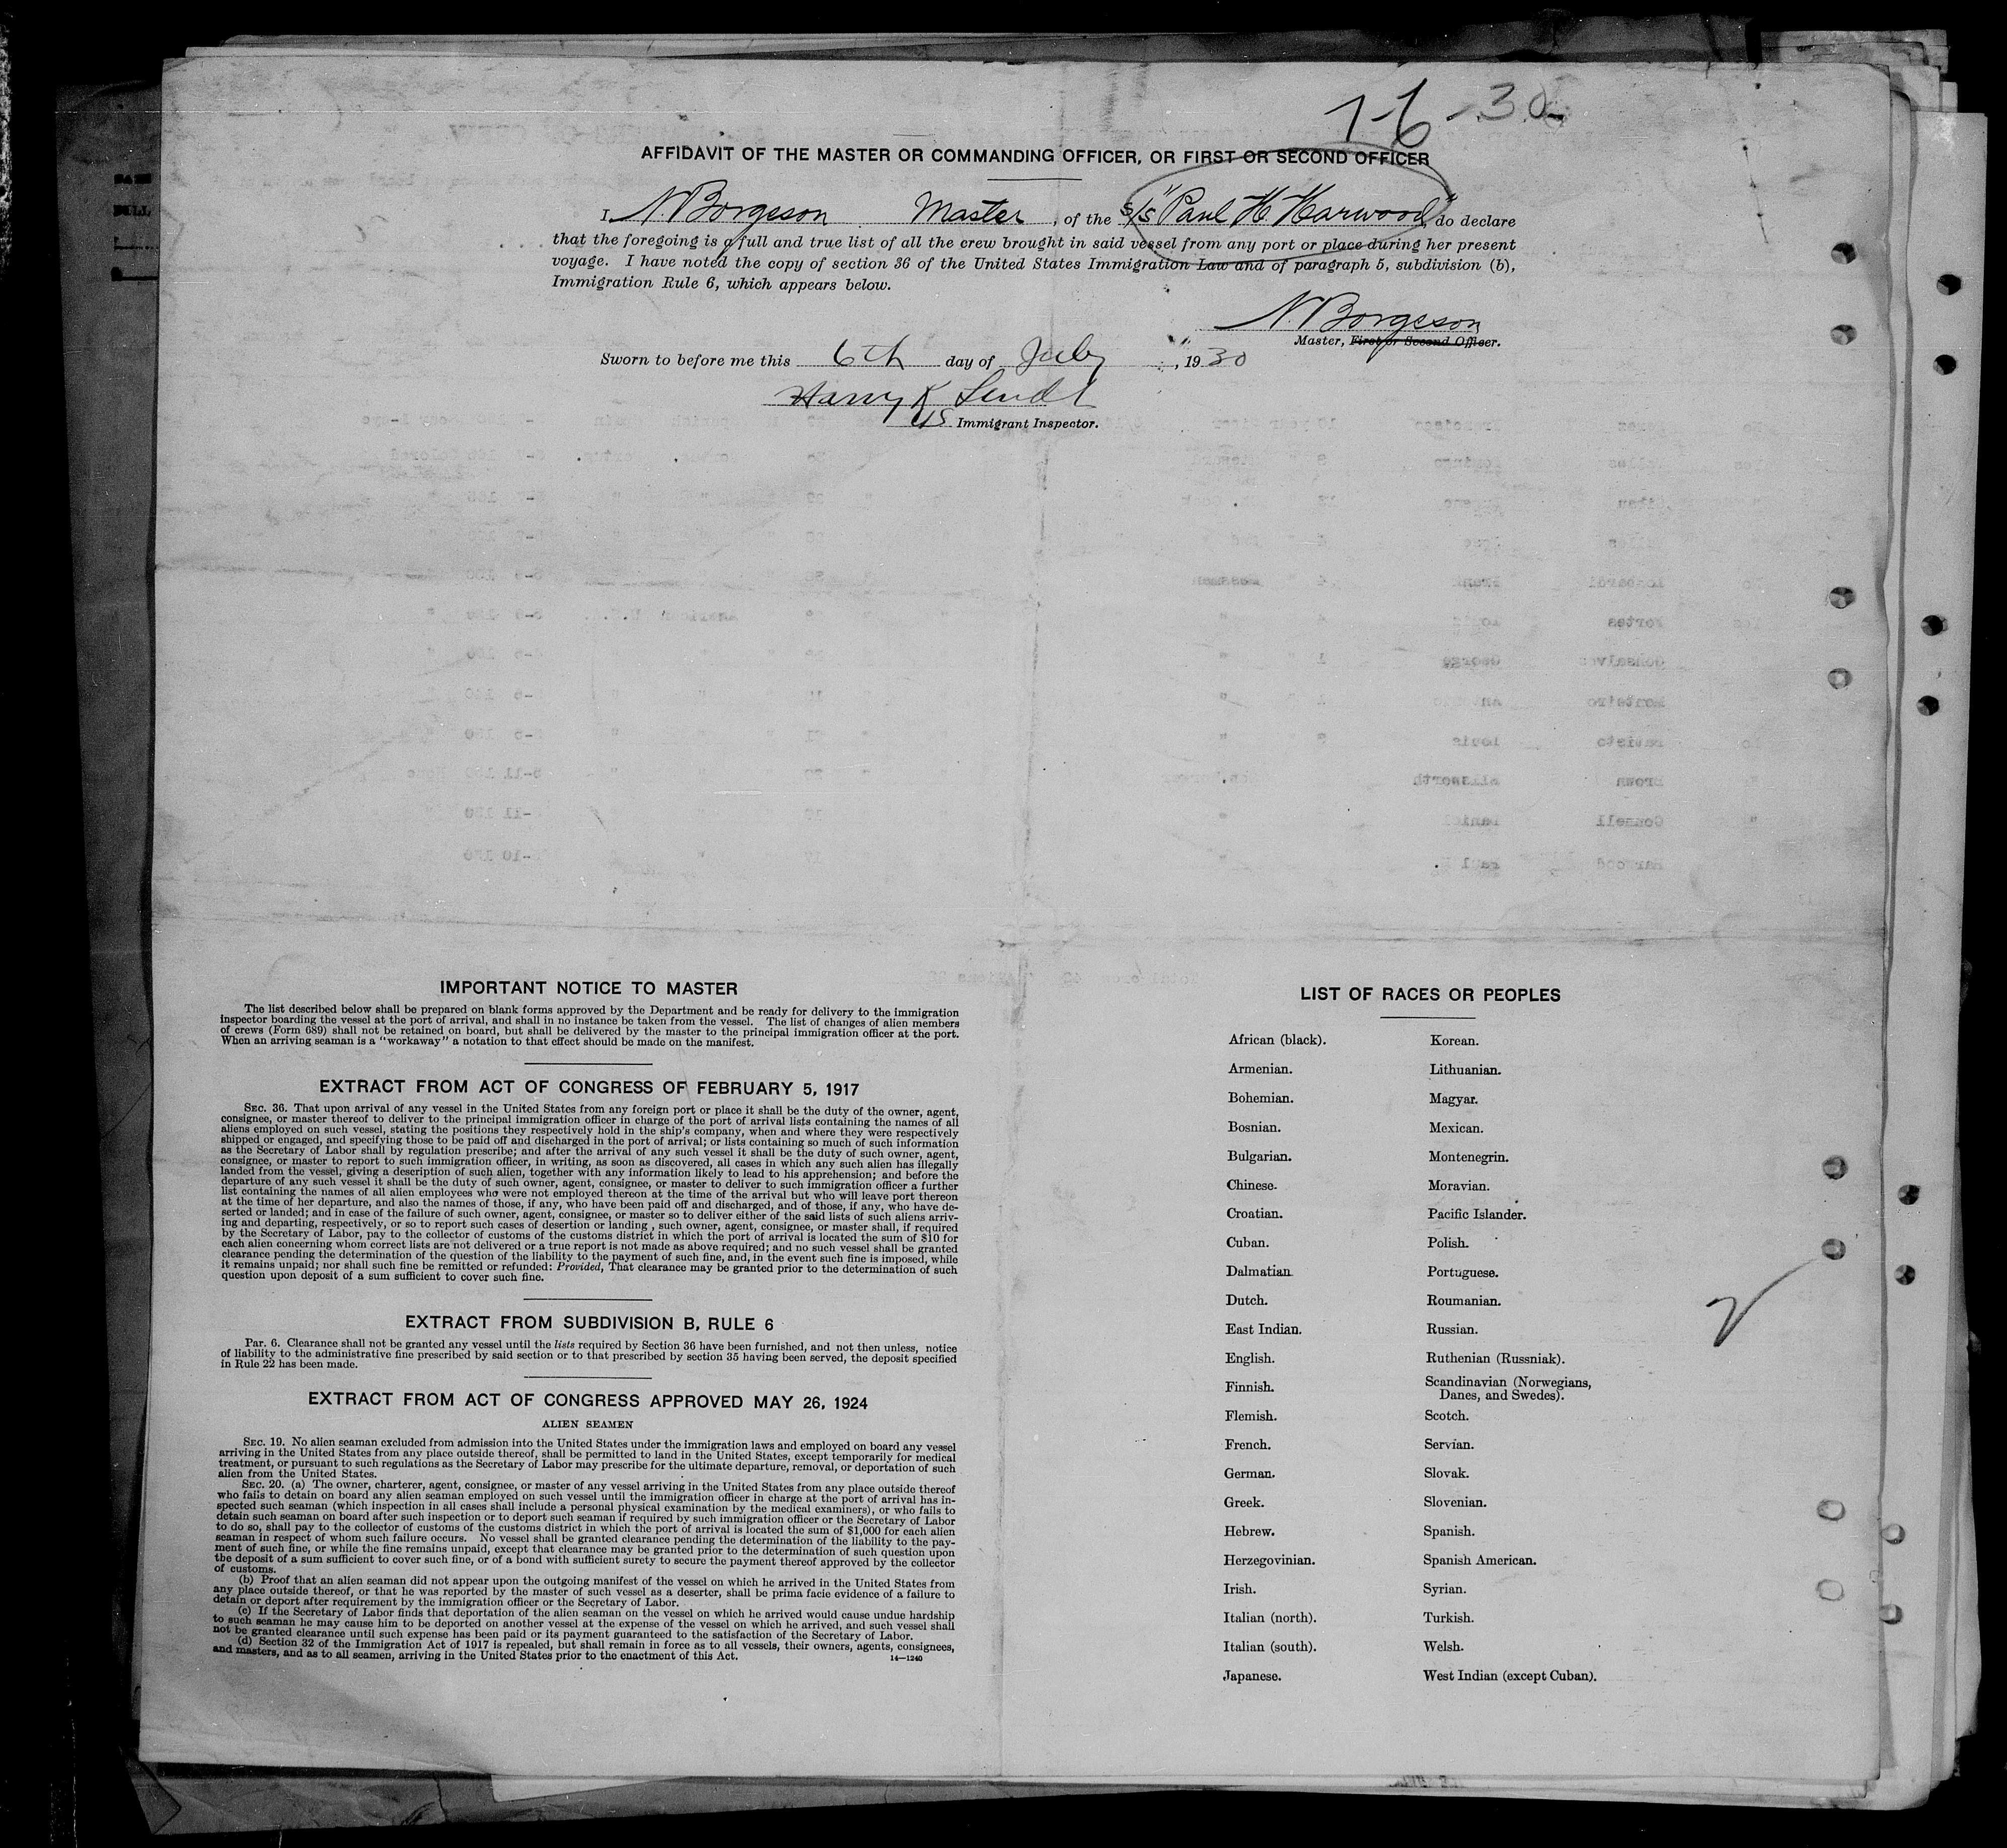 7-6-30
AFFIDAVIT OF THE MASTER OR COMMANDING OFFICER, OR FIRST OR SECOND OFFICER
I, N. Borgeson Master, of the S/S "Paul H Harwood" do declare
that the foregoing is a full and true list of all the crew brought in said vessel from any port or place during her present
voyage. I have noted the copy of section 36 of the United States Immigration Law and of paragraph 5, subdivision (b),
Immigration Rule 6, which appears below.
N. Borgeson
Master, First or Second Officer.
Sworn to before me this 6th day of July, 1930
Harry K
US Immigrant Inspector.
IMPORTANT NOTICE TO MASTER
The list described below shall be prepared on blank forms approved by the Department and be ready for delivery to the immigration
inspector boarding the vessel at the port of arrival, and shall in no instance be taken from the vessel. The list of changes of alien members
of crews (Form 689) shall not be retained on board, but shall be delivered by the master to the principal immigration officer at the port.
When an arriving seaman is a "workaway" a notation to that effect should be made on the manifest.
EXTRACT FROM ACT OF CONGRESS OF FEBRUARY 5, 1917
SEC. 36. That upon arrival of any vessel in the United States from any foreign port or place it shall be the duty of the owner, agent,
consignee, or master thereof to deliver to the principal immigration officer in charge of the port of arrival lists containing the names of all
aliens employed on such vessel, stating the positions they respectively hold in the ship's company, when and where they were respectively
shipped or engaged, and specifying those to be paid off and discharged in the port of arrival; or lists containing so much of such information
as the Secretary of Labor shall by regulation prescribe; and after the arrival of any such vessel it shall be the duty of such owner, agent,
consignee, or master to report to such immigration officer, in writing, as soon as discovered, all cases in which any such alien has illegally
landed from the vessel, giving a description of such alien, together with any information likely to lead to his apprehension; and before the
departure of any such vessel it shall be the duty of such owner, agent, consignee, or master to deliver to such immigration officer a further
list containing the names of all alien employees who were not employed thereon at the time of the arrival but who will leave port thereon
at the time of her departure, and also the names of those, if any, who have been paid off and discharged, and of those, if any, who have de-
serted or landed; and in case of the failure of such owner, agent, consignee, or master so to deliver either of the said lists of such aliens arriv-
ing and departing, respectively, or so to report such cases of desertion or landing, such owner, agent, consignee, or master shall, if required
by the Secretary of Labor, pay to the collector of customs of the customs district in which the port of arrival is located the sum of $10 for
each alien concerning whom correct lists are not delivered or a true report is not made as above required; and no such vessel shall be granted
clearance pending the determination of the question of the liability to the payment of such fine, and, in the event such fine is imposed, while
it remains unpaid; nor shall such fine be remitted or refunded: Provided, That clearance may be granted prior to the determination of such
question upon deposit of a sum sufficient to cover such fine.
EXTRACT FROM SUBDIVISION B, RULE 6
Par. 6. Clearance shall not be granted any vessel until the lists required by Section 36 have been furnished, and not then unless, notice
of liability to the administrative fine prescribed by said section or to that prescribed by section 35 having been served, the deposit specified
in Rule 22 has been made.
EXTRACT FROM ACT OF CONGRESS APPROVED MAY 26, 1924
ALIEN SEAMEN
SEC. 19. No alien seaman excluded from admission into the United States under the immigration laws and employed on board any vessel
arriving in the United States from any place outside thereof, shall be permitted to land in the United States, except temporarily for medical
treatment, or pursuant to such regulations as the Secretary of Labor may prescribe for the ultimate departure, removal, or deportation of such
alien from the United States.
SEC. 20. (a) The owner, charterer, agent, consignee, or master of any vessel arriving in the United States from any place outside thereof
who fails to detain on board any alien seaman employed on such vessel until the immigration officer in charge at the port of arrival has in-
spected such seaman (which inspection in all cases shall include a personal physical examination by the medical examiners), or who fails to
detain such seaman on board after such inspection or to deport such seaman if required by such immigration officer or the Secretary of Labor
to do so, shall pay to the collector of customs of the customs district in which the port of arrival is located the sum of $1,000 for each alien
seaman in respect of whom such failure occurs. No vessel shall be granted clearance pending the determination of the liability to the pay-
ment of such fine, or while the fine remains unpaid, except that clearance may be granted prior to the determination of such question upon
the deposit of a sum sufficient to cover such fine, or of a bond with sufficient surety to secure the payment thereof approved by the collector
of customs.
(b) Proof that an alien seaman did not appear upon the outgoing manifest of the vessel on which he arrived in the United States from
any place outside thereof, or that he was reported by the master of such vessel as a deserter, shall be prima facie evidence of a failure to
detain or deport after requirement by the immigration officer or the Secretary of Labor.
(c) If the Secretary of Labor finds that deportation of the alien seaman on the vessel on which he arrived would cause undue hardship
to such seaman he may cause him to be deported on another vessel at the expense of the vessel on which he arrived, and such vessel shall
not be granted clearance until such expense has been paid or its payment guaranteed to the satisfaction of the Secretary of Labor.
(d) Section 32 of the Immigration Act of 1917 is repealed, but shall remain in force as to all vessels, their owners, agents, consignees,
and masters, and as to all seamen, arriving in the United States prior to the enactment of this Act.
14—1240
LIST OF RACES OR PEOPLES
African (black).
Armenian.
Bohemian.
Bosnian.
Bulgarian.
Chinese.
Croatian.
Cuban.
Dalmatian
Dutch.
East Indian.
English.
Finnish.
Flemish.
French.
German.
Greek.
Hebrew.
Herzegovinian.
Irish.
Italian (north).
Italian (south).
Japanese.
Korean.
Lithuanian.
Magyar.
Mexican.
Montenegrin.
Moravian.
Pacific Islander.
Polish.
Portuguese.
Roumanian.
Russian.
Ruthenian (Russniak).
Scandinavian (Norwegians,
Danes, and Swedes).
Scotch.
Servian.
Slovak.
Slovenian.
Spanish.
Spanish American.
Syrian.
Turkish.
Welsh.
West Indian (except Cuban).